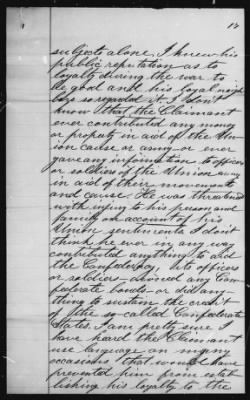 12
subjects alone. I knew his
public reputation as to
loyalty during the war to
be good and his loyal neigh
bors so regarded it. I don't
know that the Claimant
ever contributed any money
or property in aid of the Un
ion cause or army or ever
gave any information to officers
or soldiers of the Union army
in aid of their movements
and cause. He was threatened
with injury to his person and
family on account of his
Union sentiments I don't
think he ever in any way
contributed anything to aid
the Confederacy, its officers
or soldiers owned any Con
federate bonds or did any
thing to sustain the credit
of the so-called Confederate
States. I am pretty sure I
have heard the Claimant
use language on many
occasions that would have
prevented him from estab
lishing his loyalty to the